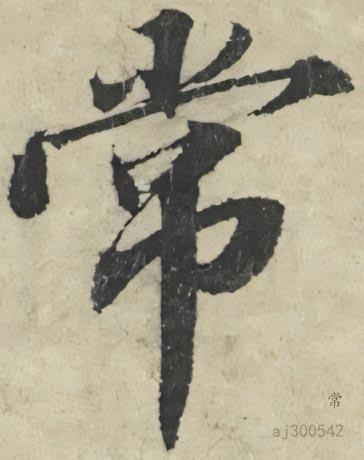 常
常
aj300542